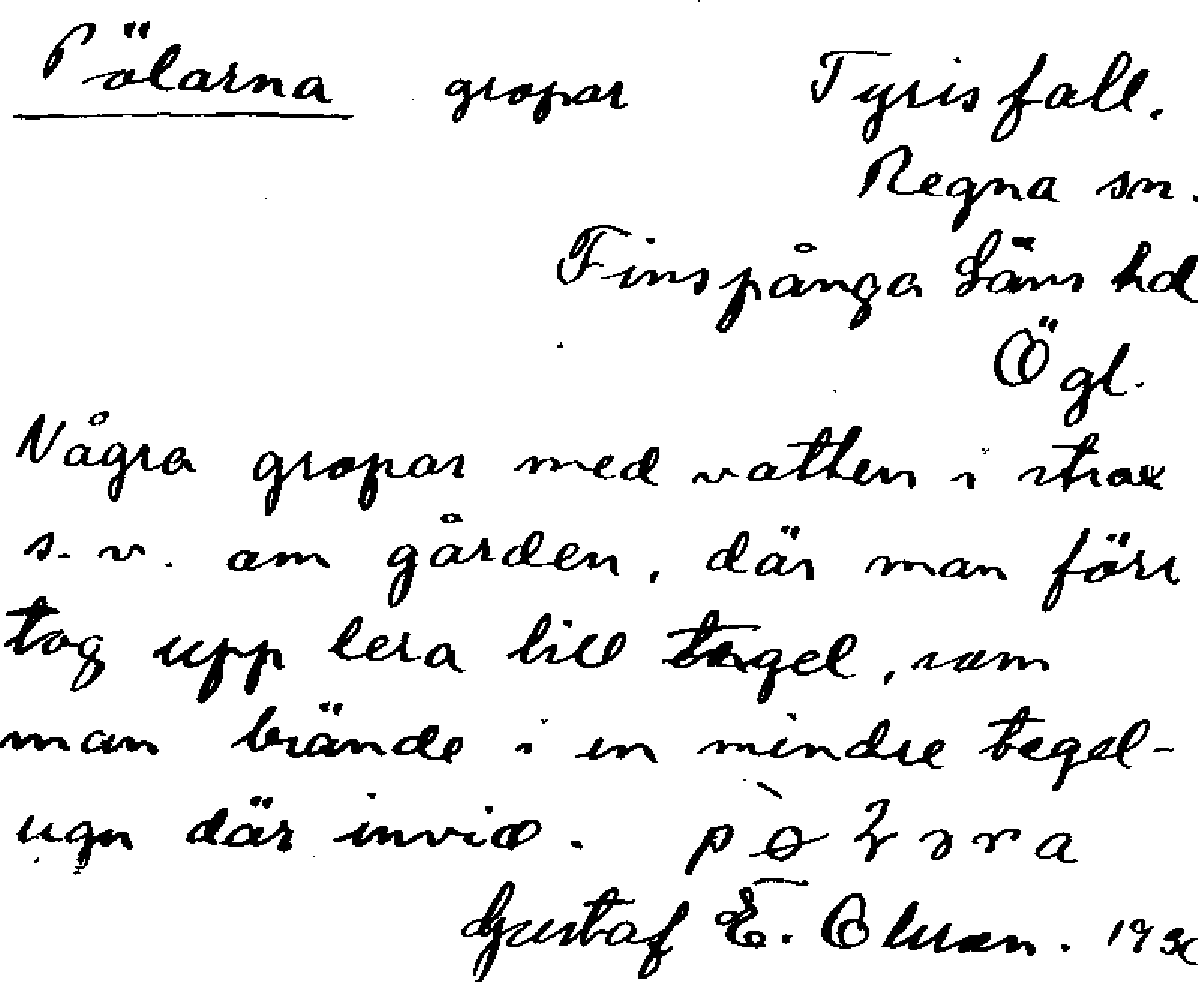 Pölarna gropar Tyrisfall.
Regna sn.
Finspånga Läns hd
Ögl.
Några gropar med vatten i strax
s.v. om gården, där man förr
tog upp lera till tegel, som
man brände i en mindre tegel-
ugn där invid.
Gustaf E. Olsson.